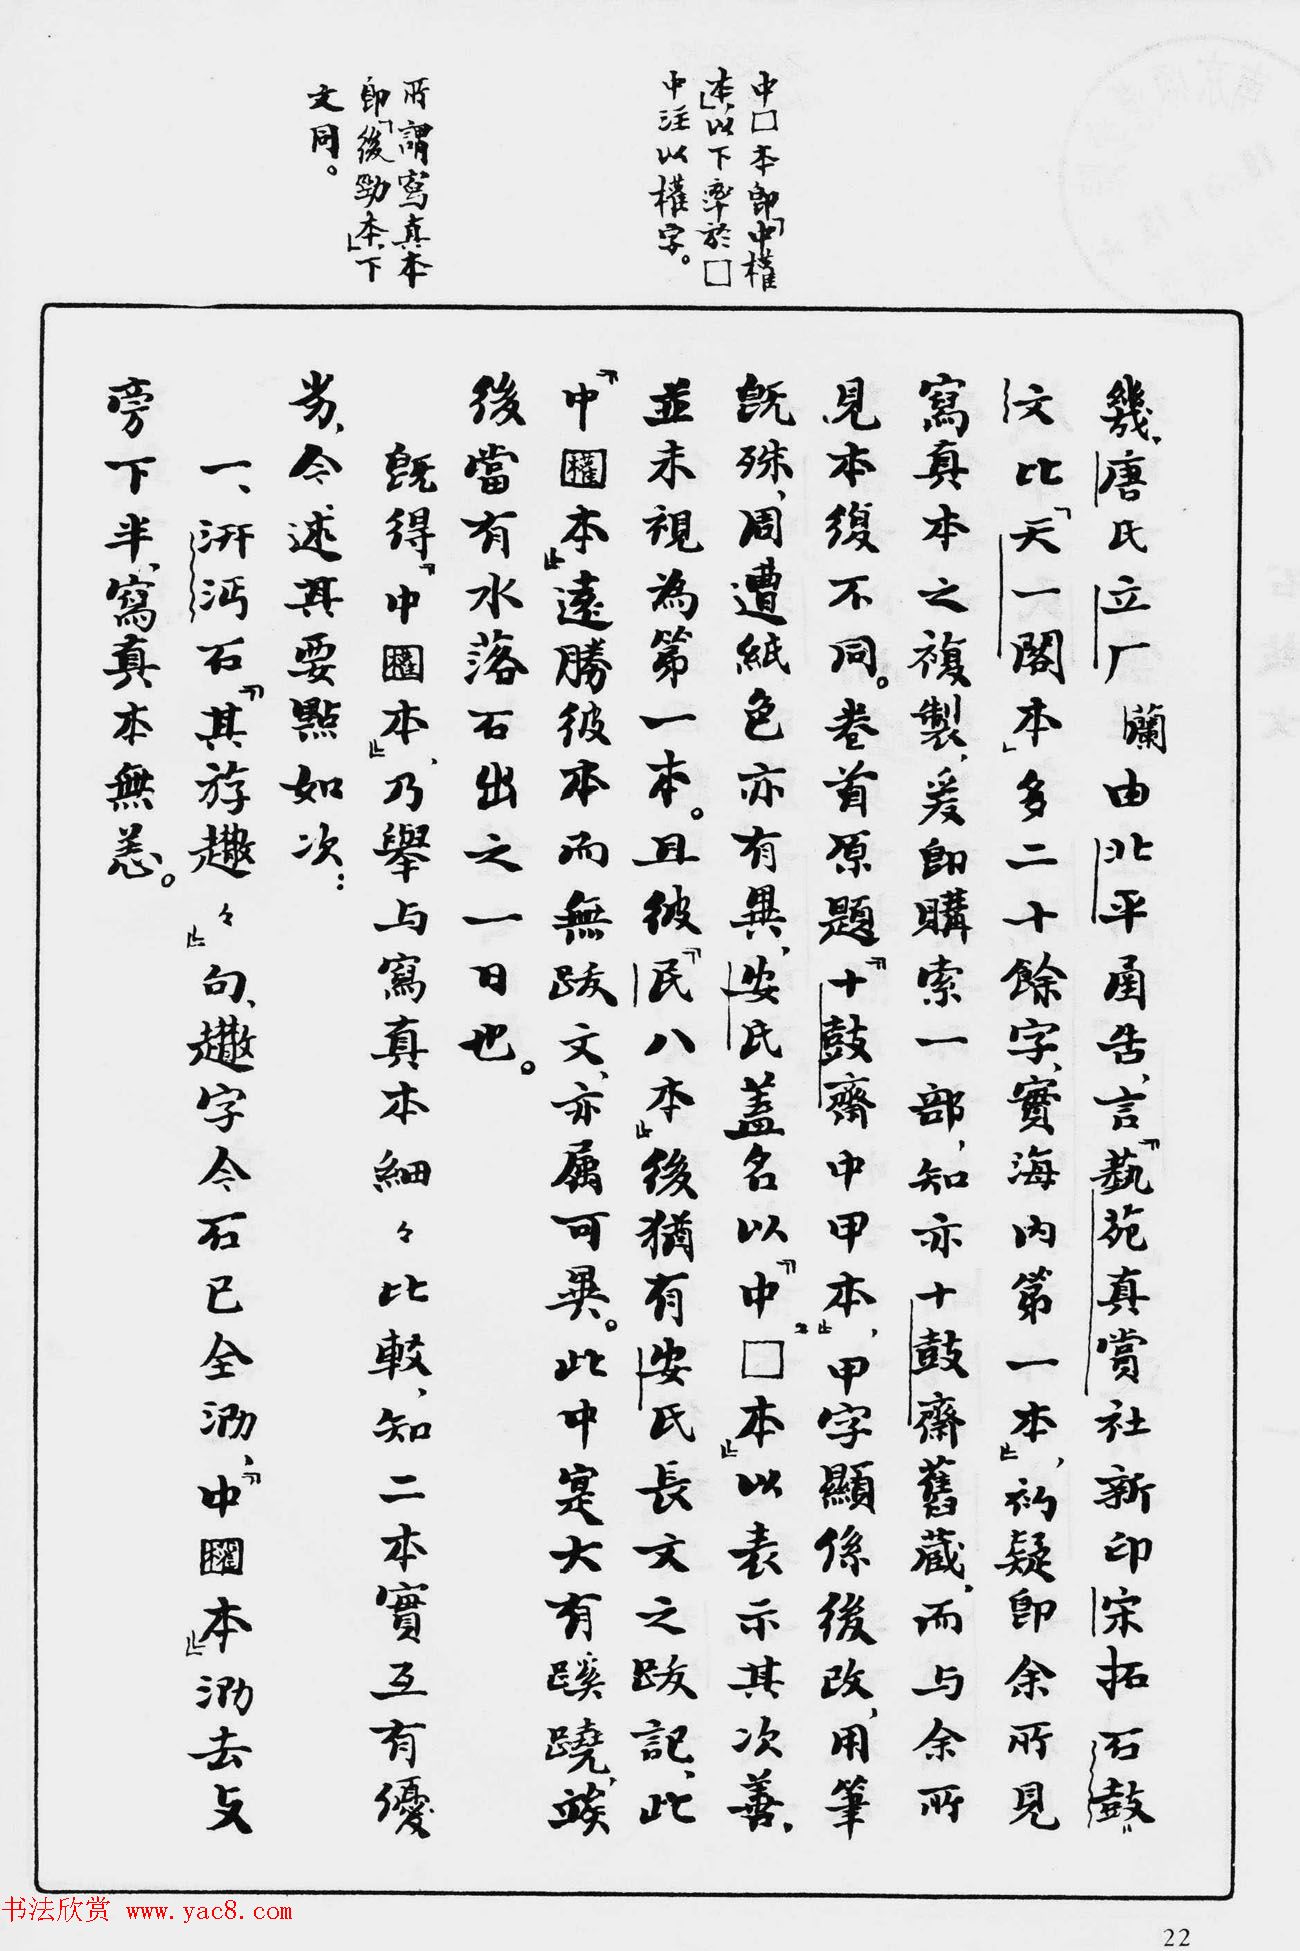 中□本即「中權
本」，以下率於□
中注以權字。
所謂寫真本
即「後勁本」，下
文同。
幾，唐氏立厂蘭由北平函告，言「藝苑真賞社新印宋拓石鼓
文比「天一閣本」多二十餘字，實海內第一本」，初疑即余所見
寫真本之複製，爰即購索一部，知亦十鼓齋舊藏，而与余所
見本復不同。卷首原題「十鼓齋中甲本」，甲字顯係後改，用筆
既殊，周遭紙色亦有異，安氏蓋名以「中□本」以表示其次善，
並未視為第一本。且彼「民八本」後猶有安氏長文之跋記，此
「中權本」遠勝彼本而無跋文，亦屬可異。此中寔大有蹊蹺，竢
後當有水落石出之一日也。
既得「中權本」，乃舉与寫真本細々比較，知二本實互有優
劣，今述其要點如次：
一、汧沔石「其斿趣々」句，趣字今石已全泐，「中權本」泐去攴
旁下半，寫真本無恙。
书法欣赏 www.yac8.com
22